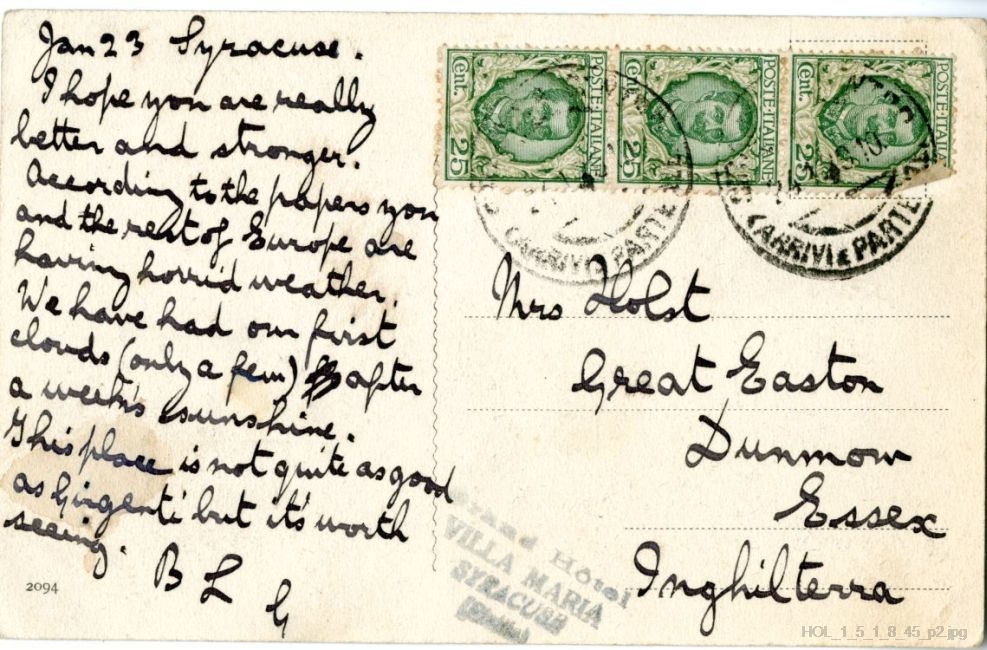 Jan 23 Syracuse.
I hope you are really
better and stronger.
According to the papers you
and the rest of Europe are
having horrid weather.
We have had our first
clouds (only a few) after
a week's sunshine.
This place is not quite as good
as Girgenti but it's worth
seeing.
B L
G
2094
Cent. 25 POSTE·ITALIANE
Cent. 25 POSTE·ITALIANE
Cent. 25 POSTE·ITALIANE
(ARRIVI E PARTENZE
(ARRIVI E PARTENZE
Mrs Holst
Great Easton
Dunmow
Essex
Inghilterra
Grand Hôtel
VILLA MARIA
SYRACUSE
HOL_1_5_1_8_45_p2.jpg